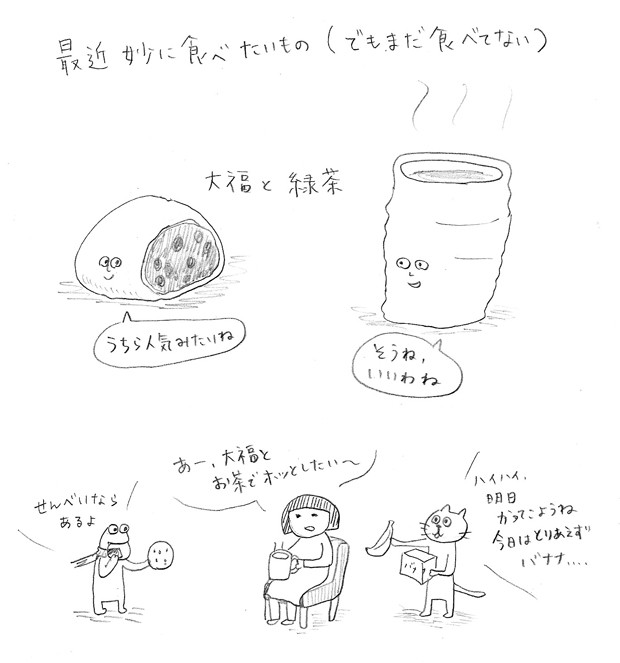 最近 妙に食べたいもの（でもまだ食べてない）
大福と緑茶
うちら人気みたいね
そうね,
いいわね
せんべいなら
あるよ
あー、大福と
お茶でホッとしたい〜
ハイハイ、
明日
かってこようね
今日はとりあえず
バナナ....